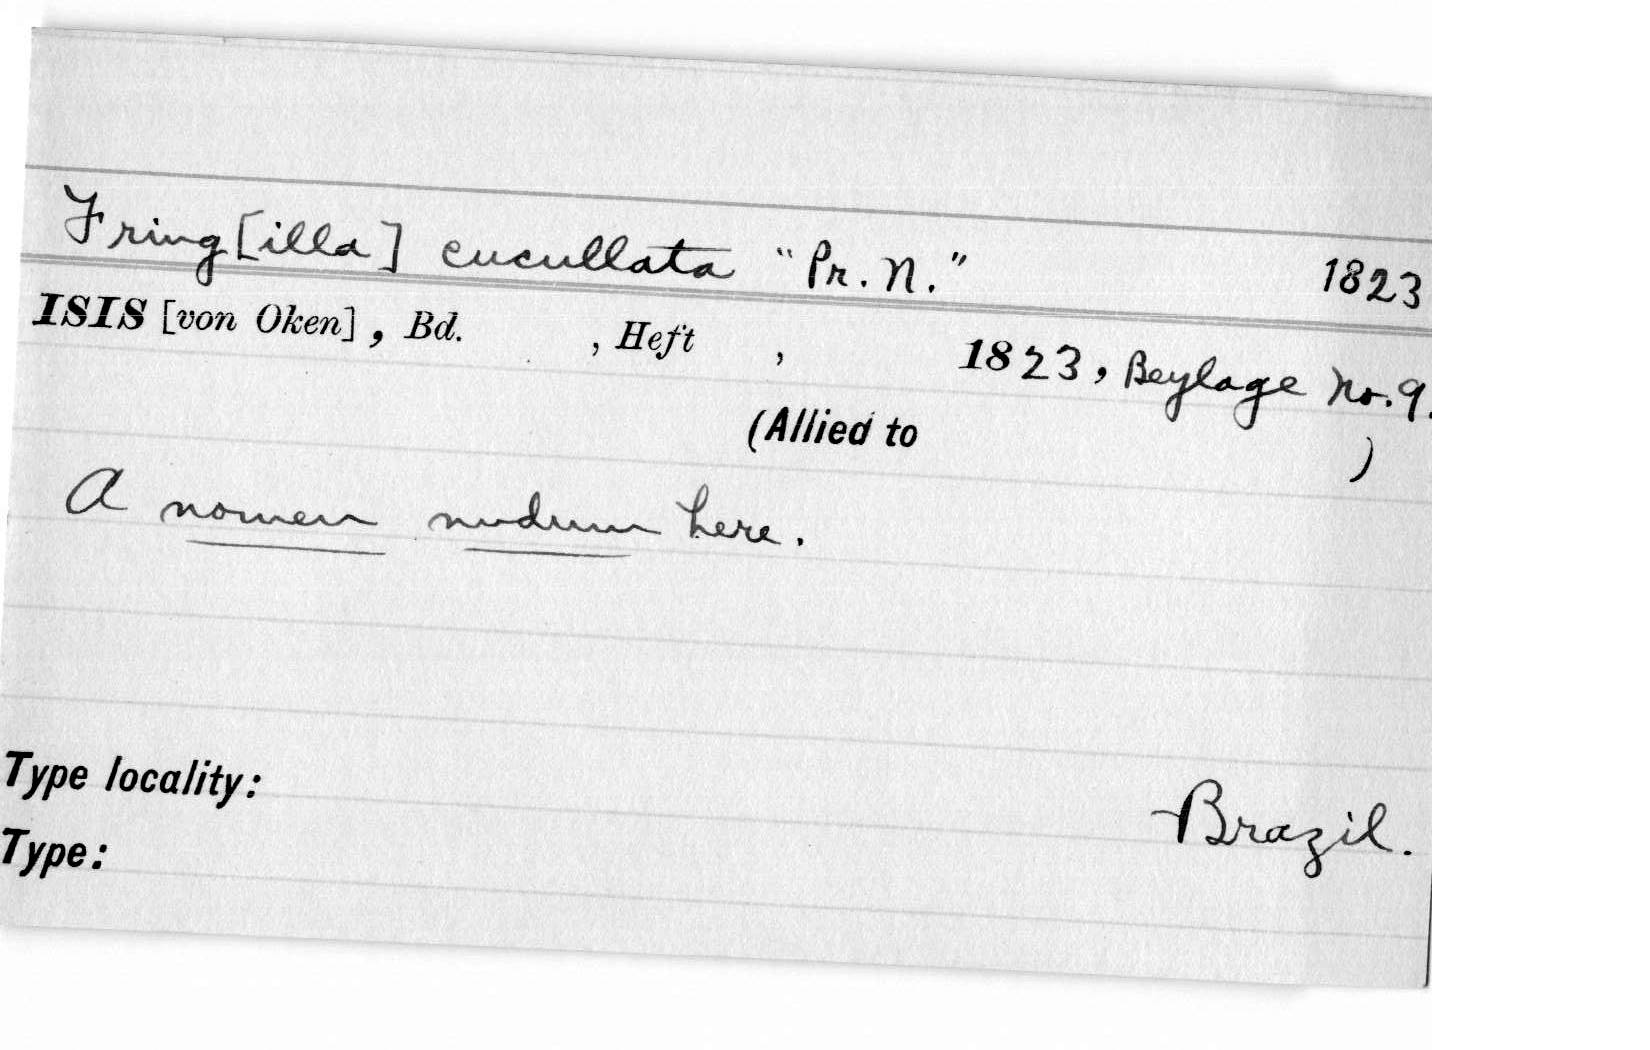 Fring[illa] cucullata "Pr. N." 1823
ISIS [von Oken], Bd. , Heft , 1823, Beylage No. 9.
(Allied to )
A nomen nudum here.
Type locality: Brazil.
Type: